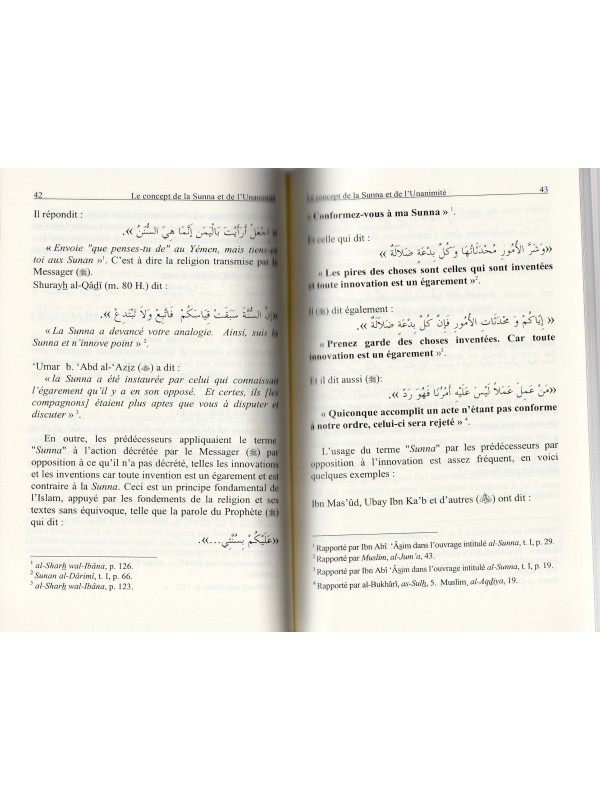 42 Le concept de la Sunna et de l'Unanimité
Il répondit :
« اجْعَلْ أَرَأَيْتَ بِالْيَمَنِ إِنَّمَا هِيَ السُّنَنُ ».
« Envoie "que penses-tu de" au Yémen, mais tiens-
toi aux Sunan »¹. C'est à dire la religion transmise par le
Messager (ﷺ).
Shurayḥ al-Qâḍî (m. 80 H.) dit :
«إِنَّ السُّنَّةَ سَبَقَتْ قِيَاسَكُمْ فَاتَّبِعْ وَلاَ تَبْتَدِعْ».
« La Sunna a devancé votre analogie. Ainsi, suis la
Sunna et n'innove point » ².
'Umar b. 'Abd al-'Azîz () a dit :
« la Sunna a été instaurée par celui qui connaissait
l'égarement qu'il y a en son opposé. Et certes, ils [les
compagnons] étaient plus aptes que vous à disputer et
discuter » ³.
En outre, les prédécesseurs appliquaient le terme
"Sunna" à l'action décrétée par le Messager (ﷺ) par
opposition à ce qu'il n'a pas décrété, telles les innovations
et les inventions car toute invention est un égarement et est
contraire à la Sunna. Ceci est un principe fondamental de
l'Islam, appuyé par les fondements de la religion et ses
textes sans équivoque, telle que la parole du Prophète (ﷺ)
qui dit :
«عَلَيْكُمْ بِسُنَّتِي...».
¹ al-Sharḥ wal-Ibâna, p. 126.
² Sunan al-Dârimî, t. I, p. 66.
³ al-Sharḥ wal-Ibâna, p. 123.
Le concept de la Sunna et de l'Unanimité 43
« Conformez-vous à ma Sunna » ¹.
Et celle qui dit :
«وَشَرُّ الأُمُورِ مُحْدَثَاتُهَا وَكُلُّ بِدْعَةٍ ضَلاَلَةٌ »
« Les pires des choses sont celles qui sont inventées
et toute innovation est un égarement »².
Il (ﷺ) dit également :
« إِيَّاكُمْ وَ مُحْدَثَاتِ الأُمُورِ فَإِنَّ كُلَّ بِدْعَةٍ ضَلاَلَةٌ».
« Prenez garde des choses inventées. Car toute
innovation est un égarement »³.
Et il dit aussi (ﷺ):
«مَنْ عَمِلَ عَمَلاً لَيْسَ عَلَيْهِ أَمْرُنَا فَهُوَ رَدٌّ ».
« Quiconque accomplit un acte n'étant pas conforme
à notre ordre, celui-ci sera rejeté » ⁴.
L'usage du terme "Sunna" par les prédécesseurs par
opposition à l'innovation est assez fréquent, en voici
quelques exemples :
Ibn Mas'ûd, Ubay Ibn Ka'b et d'autres () ont dit :
¹ Rapporté par Ibn Abî 'Âṣim dans l'ouvrage intitulé al-Sunna, t. I, p. 29.
² Rapporté par Muslim, al-Jum'a, 43.
³ Rapporté par Ibn Abî 'Âṣim dans l'ouvrage intitulé al-Sunna, t. I, p. 19.
⁴ Rapporté par al-Bukhârî, as-Sulḥ, 5. Muslim, al-Aqḍiya, 19.